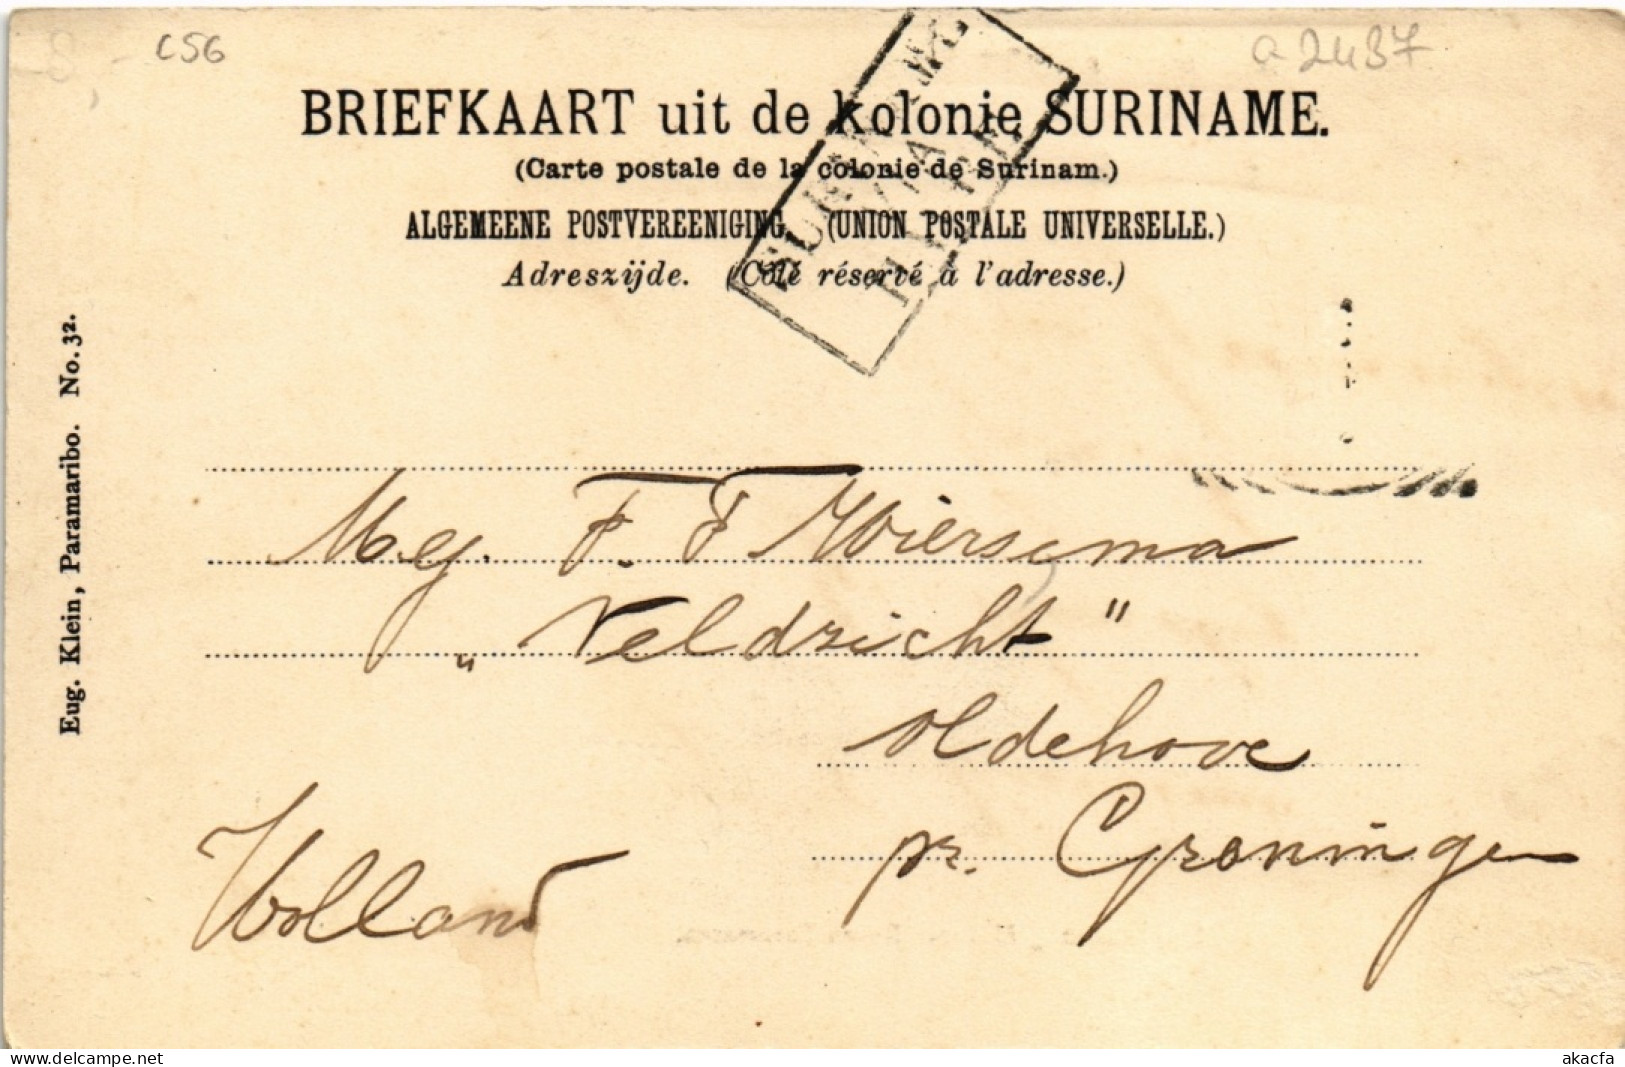 C56
a 2437
BRIEFKAART uit de kolonie SURINAME.
(Carte postale de la colonie de Surinam.)
ALGEMEENE POSTVEREENIGING. (UNION POSTALE UNIVERSELLE.)
Adreszijde. (Côté réservé à l'adresse.)
SURINAME
VIA
Eug. Klein, Paramaribo. No. 32.
Mej. F. F Wiersema
„Veldzicht"
Oldehove
pr. Groningen
Holland
www.delcampe.net
akacfa